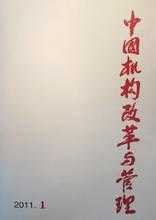 中国机构改革与管理
2011. 1